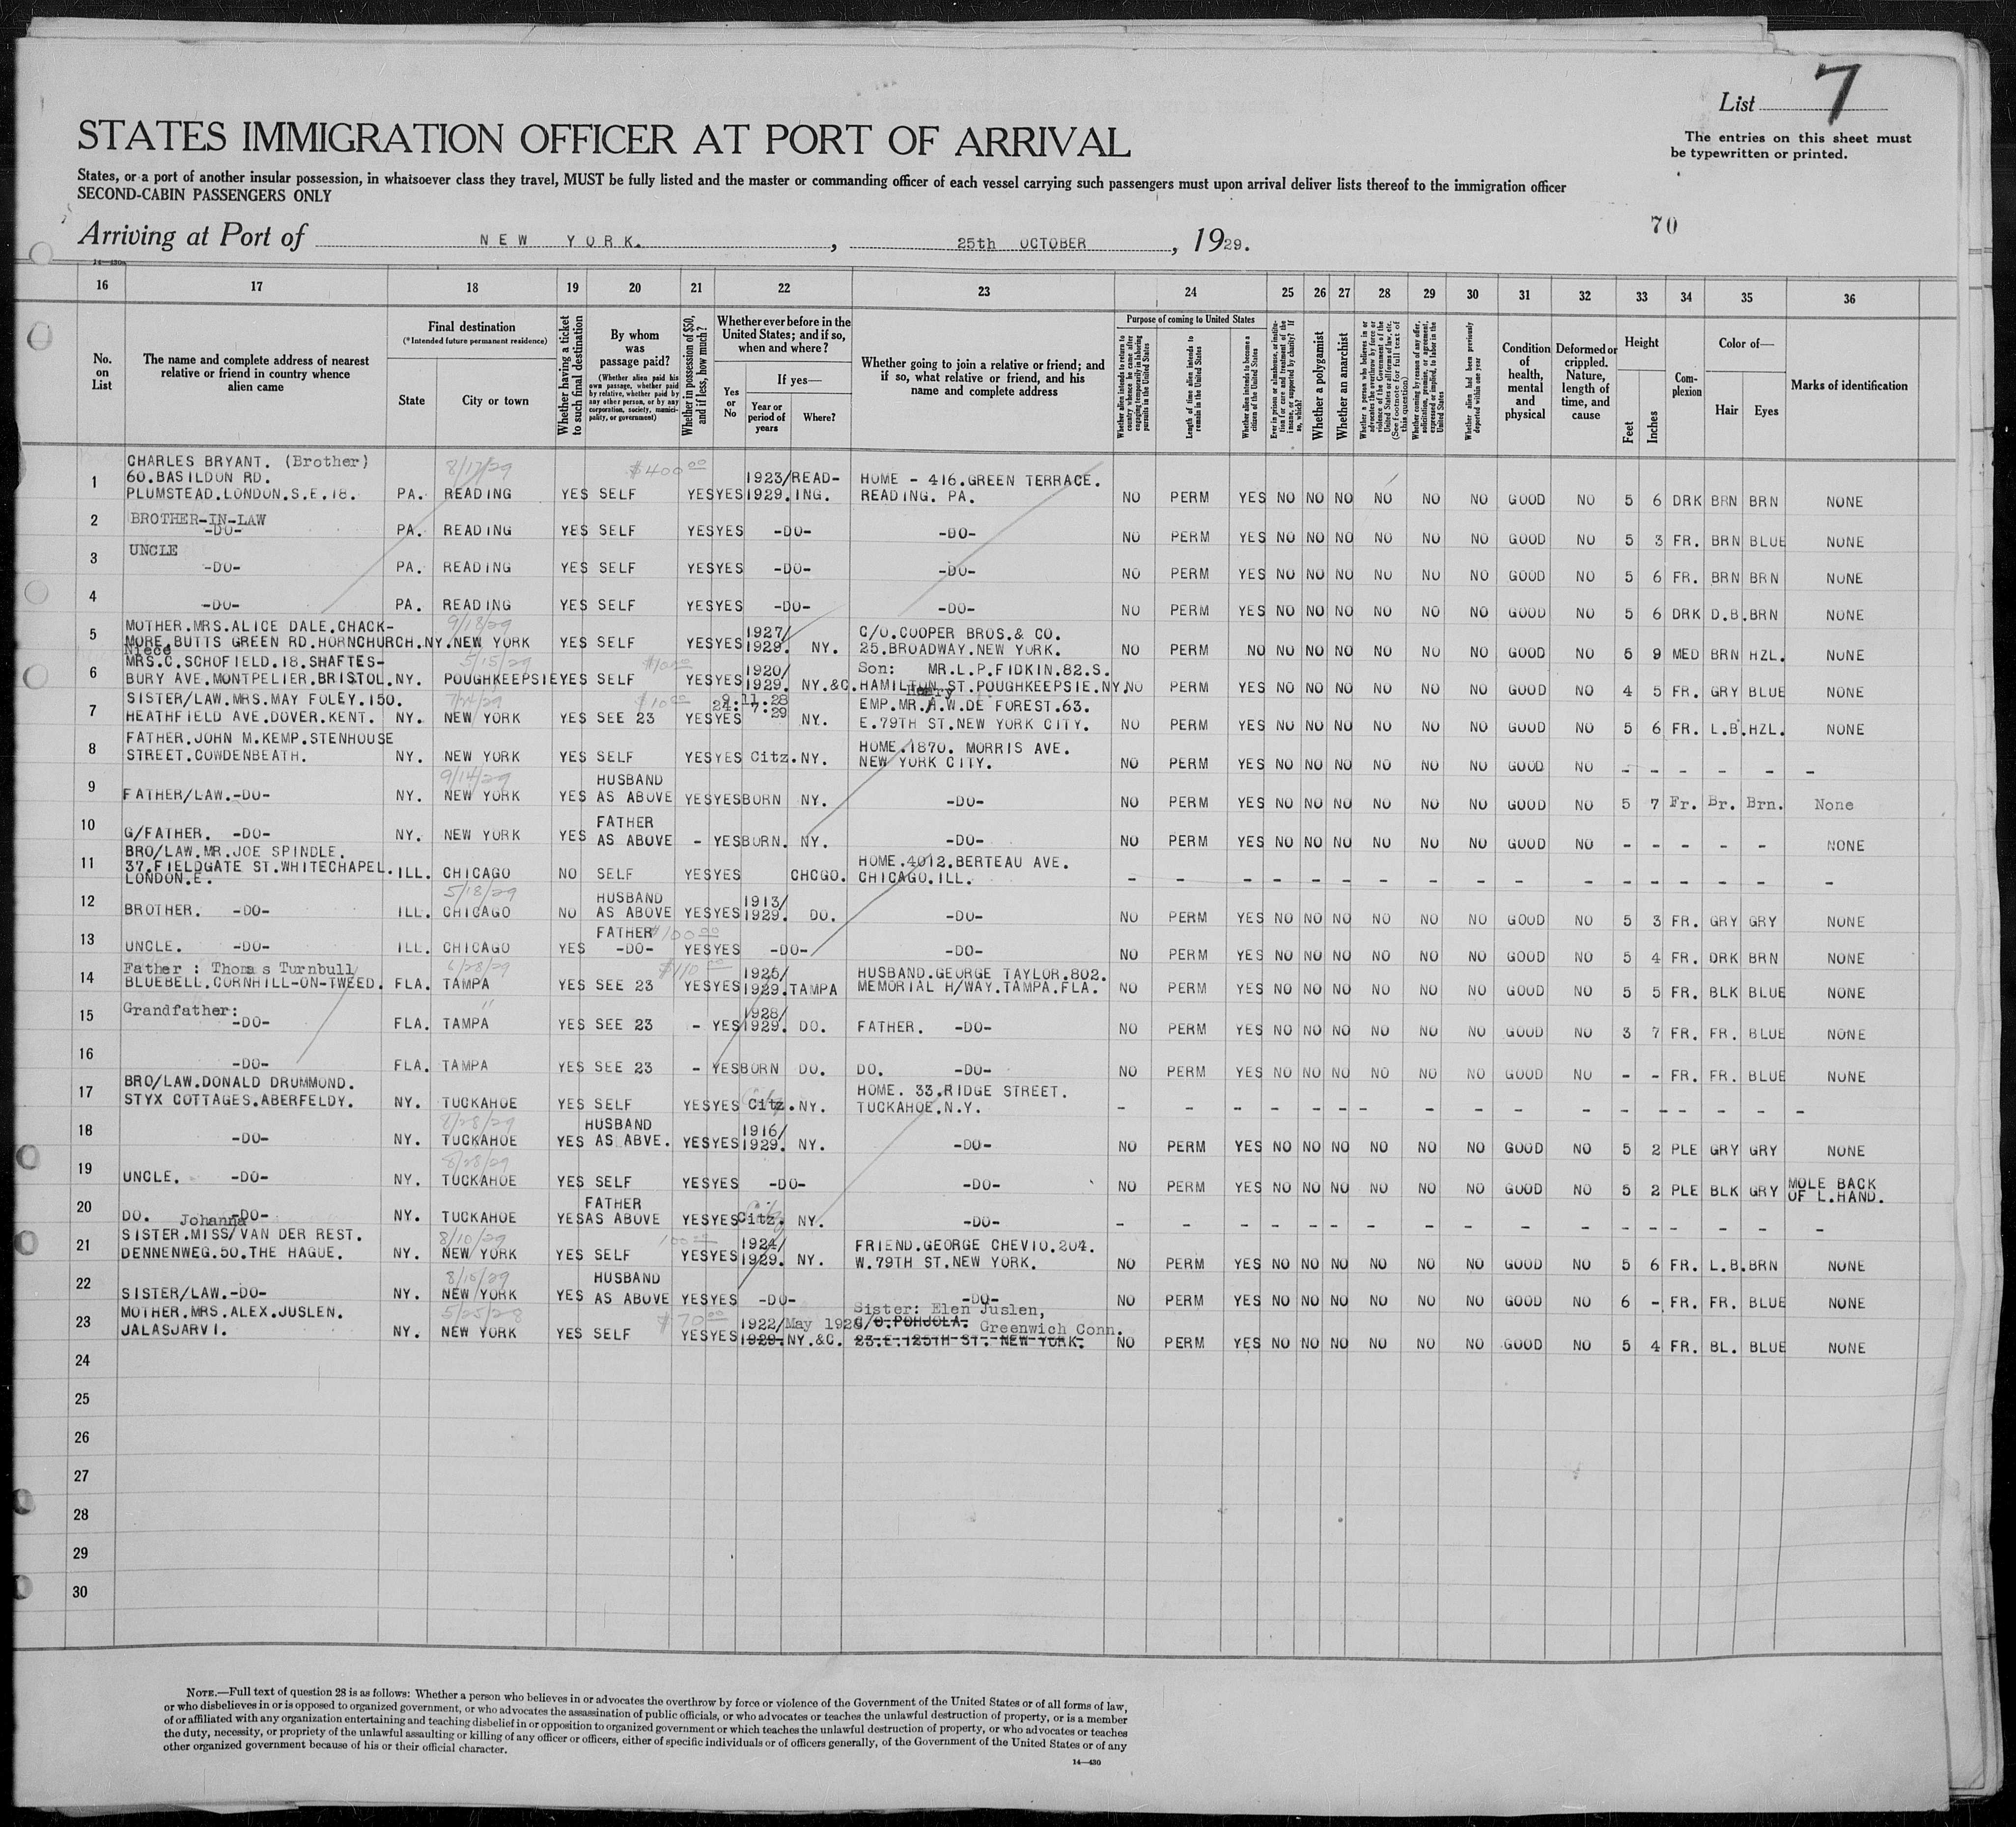 List 7
The entries on this sheet must
be typewritten or printed.
STATES IMMIGRATION OFFICER AT PORT OF ARRIVAL
States, or a port of another insular possession, in whatsoever class they travel, MUST be fully listed and the master or commanding officer of each vessel carrying such passengers must upon arrival deliver lists thereof to the immigration officer
SECOND-CABIN PASSENGERS ONLY
70
Arriving at Port of NEW YORK. , 25th OCTOBER , 1929.
14-430a
16 17 18 19 20 21 22 23 24 25 26 27 28 29 30 31 32 33 34 35 36
No. on List
The name and complete address of nearest relative or friend in country whence alien came
Final destination
(*Intended future permanent residence)
State City or town
Whether having a ticket to such final destination
By whom was passage paid?
(Whether alien paid his own passage, whether paid by relative, whether paid by any other person, or by any corporation, society, municipality, or government)
Whether in possession of $50, and if less, how much?
Whether ever before in the United States; and if so, when and where?
Yes or No
If yes—
Year or period of years
Where?
Whether going to join a relative or friend; and if so, what relative or friend, and his name and complete address
Purpose of coming to United States
Whether alien intends to return to country whence he came after engaging temporarily in laboring pursuits in the United States
Length of time alien intends to remain in the United States
Whether alien intends to become a citizen of the United States
Ever in prison or almshouse, or institution for care and treatment of the insane, or supported by charity? If so, which?
Whether a polygamist
Whether an anarchist
Whether a person who believes in or advocates the overthrow by force or violence of the Government of the United States or all forms of law, etc. (See footnote for full text of this question)
Whether coming by reason of any offer, solicitation, promise, or agreement, expressed or implied, to labor in the United States
Whether alien had been previously deported within one year
Condition of health, mental and physical
Deformed or crippled. Nature, length of time, and cause
Height
Feet Inches
Complexion
Color of—
Hair Eyes
Marks of identification
1 CHARLES BRYANT. (Brother) 8/17/29 $400 00
60.BASILDON RD. 1923/ READ- HOME - 416.GREEN TERRACE.
PLUMSTEAD.LONDON.S.E.18. PA. READING YES SELF YES YES 1929. ING. READING. PA. NO PERM YES NO NO NO NO NO NO GOOD NO 5 6 DRK BRN BRN NONE
2 BROTHER-IN-LAW
-DO- PA. READING YES SELF YES YES -DO- -DO- NO PERM YES NO NO NO NO NO NO GOOD NO 5 3 FR. BRN BLUE NONE
3 UNCLE
-DO- PA. READING YES SELF YES YES -DO- -DO- NO PERM YES NO NO NO NO NO NO GOOD NO 5 6 FR. BRN BRN NONE
4 -DO- PA. READING YES SELF YES YES -DO- -DO- NO PERM YES NO NO NO NO NO NO GOOD NO 5 6 DRK D.B. BRN NONE
5 MOTHER.MRS.ALICE DALE.CHACK- 9/18/29 1927/ C/O.COOPER BROS.& CO.
MORE.BUTTS GREEN RD.HORNCHURCH. NY. NEW YORK YES SELF YES YES 1929. NY. 25.BROADWAY.NEW YORK. NO PERM NO NO NO NO NO NO NO GOOD NO 5 9 MED BRN HZL. NONE
Niece
6 MRS.C.SCHOFIELD.18.SHAFTES- 5/15/29 1920/ Son: MR.L.P.FIDKIN.82.S.
BURY AVE.MONTPELIER.BRISTOL. NY. POUGHKEEPSIE YES SELF YES YES 1929. NY.&C. HAMILTON ST.POUGHKEEPSIE.NY. NO PERM YES NO NO NO NO NO NO GOOD NO 4 5 FR. GRY BLUE NONE
7 SISTER/LAW.MRS.MAY FOLEY.150. 7/24/29 $10 00 9:11:28 Henry EMP.MR.A.W.DE FOREST.63.
HEATHFIELD AVE.DOVER.KENT. NY. NEW YORK YES SEE 23 YES YES 24:7:29 NY. E.79TH ST.NEW YORK CITY. NO PERM YES NO NO NO NO NO NO GOOD NO 5 6 FR. L.B. HZL. NONE
8 FATHER.JOHN M.KEMP.STENHOUSE HOME.1870. MORRIS AVE.
STREET.COWDENBEATH. NY. NEW YORK YES SELF YES YES Citz. NY. NEW YORK CITY. NO PERM YES NO NO NO NO NO NO GOOD NO - - - - - -
9 9/14/29 HUSBAND
FATHER/LAW.-DO- NY. NEW YORK YES AS ABOVE YES YES BORN NY. -DO- NO PERM YES NO NO NO NO NO NO GOOD NO 5 7 Fr. Br. Brn. None
10 FATHER
G/FATHER. -DO- NY. NEW YORK YES AS ABOVE - YES BORN. NY. -DO- NO PERM YES NO NO NO NO NO NO GOOD NO - - - - - NONE
11 BRO/LAW.MR.JOE SPINDLE.
37.FIELDGATE ST.WHITECHAPEL. HOME.4012.BERTEAU AVE.
LONDON.E. ILL. CHICAGO NO SELF YES YES CHCGO. CHICAGO.ILL. - - - - - - - - - - - - - - - - -
12 5/18/29 HUSBAND 1913/
BROTHER. -DO- ILL. CHICAGO NO AS ABOVE YES YES 1929. DO. -DO- NO PERM YES NO NO NO NO NO NO GOOD NO 5 3 FR. GRY GRY NONE
13 FATHER $100 00
UNCLE. -DO- ILL. CHICAGO YES -DO- YES YES -DO- -DO- NO PERM YES NO NO NO NO NO NO GOOD NO 5 4 FR. DRK BRN NONE
14 Father : Thomas Turnbull 6/28/29 $110 00 1925/ HUSBAND.GEORGE TAYLOR.802.
BLUEBELL.CORNHILL-ON-TWEED. FLA. TAMPA YES SEE 23 YES YES 1929. TAMPA MEMORIAL H/WAY.TAMPA.FLA. NO PERM YES NO NO NO NO NO NO GOOD NO 5 5 FR. BLK BLUE NONE
15 Grandfather: " 1928/
-DO- FLA. TAMPA YES SEE 23 - YES 1929. DO. FATHER. -DO- NO PERM YES NO NO NO NO NO NO GOOD NO 3 7 FR. FR. BLUE NONE
16 -DO- FLA. TAMPA YES SEE 23 - YES BORN DO. DO. -DO- NO PERM YES NO NO NO NO NO NO GOOD NO - - FR. FR. BLUE NONE
17 BRO/LAW.DONALD DRUMMOND. HOME. 33.RIDGE STREET.
STYX COTTAGES.ABERFELDY. NY. TUCKAHOE YES SELF YES YES Citz. NY. TUCKAHOE.N.Y. - - - - - - - - - - - - - - - - -
18 8/28/29 HUSBAND 1916/
-DO- NY. TUCKAHOE YES AS ABVE. YES YES 1929. NY. -DO- NO PERM YES NO NO NO NO NO NO GOOD NO 5 2 PLE GRY GRY NONE
19 8/28/29
UNCLE. -DO- NY. TUCKAHOE YES SELF YES YES -DO- -DO- NO PERM YES NO NO NO NO NO NO GOOD NO 5 2 PLE BLK GRY MOLE BACK OF L.HAND.
20 FATHER
DO. -DO- NY. TUCKAHOE YES AS ABOVE YES YES Citz. NY. -DO- - - - - - - - - - - - - - - - - -
Johanna
21 SISTER.MISS/VAN DER REST. 8/10/29 100 00 1924/ FRIEND.GEORGE CHEVIO.204.
DENNENWEG.50.THE HAGUE. NY. NEW YORK YES SELF YES YES 1929. NY. W.79TH ST.NEW YORK. NO PERM YES NO NO NO NO NO NO GOOD NO 5 6 FR. L.B. BRN NONE
22 8/10/29 HUSBAND
SISTER/LAW.-DO- NY. NEW YORK YES AS ABOVE YES YES -DO- -DO- NO PERM YES NO NO NO NO NO NO GOOD NO 6 - FR. FR. BLUE NONE
23 MOTHER.MRS.ALEX.JUSLEN. 5/25/28 $70 00 1922/May 1928 Sister: Elen Juslen,
C/O.POHJOLA. Greenwich Conn.
JALASJARVI. NY. NEW YORK YES SELF YES YES 1929. NY.&C. 23.E.125TH ST. NEW YORK. NO PERM YES NO NO NO NO NO NO GOOD NO 5 4 FR. BL. BLUE NONE
24
25
26
27
28
29
30
NOTE.—Full text of question 28 is as follows: Whether a person who believes in or advocates the overthrow by force or violence of the Government of the United States or of all forms of law,
or who disbelieves in or is opposed to organized government, or who advocates the assassination of public officials, or who advocates or teaches the unlawful destruction of property, or is a member
of or affiliated with any organization entertaining and teaching disbelief in or opposition to organized government or which teaches the unlawful destruction of property, or who advocates or teaches
the duty, necessity, or propriety of the unlawful assaulting or killing of any officer or officers, either of specific individuals or of officers generally, of the Government of the United States or of any
other organized government because of his or their official character.
14—430